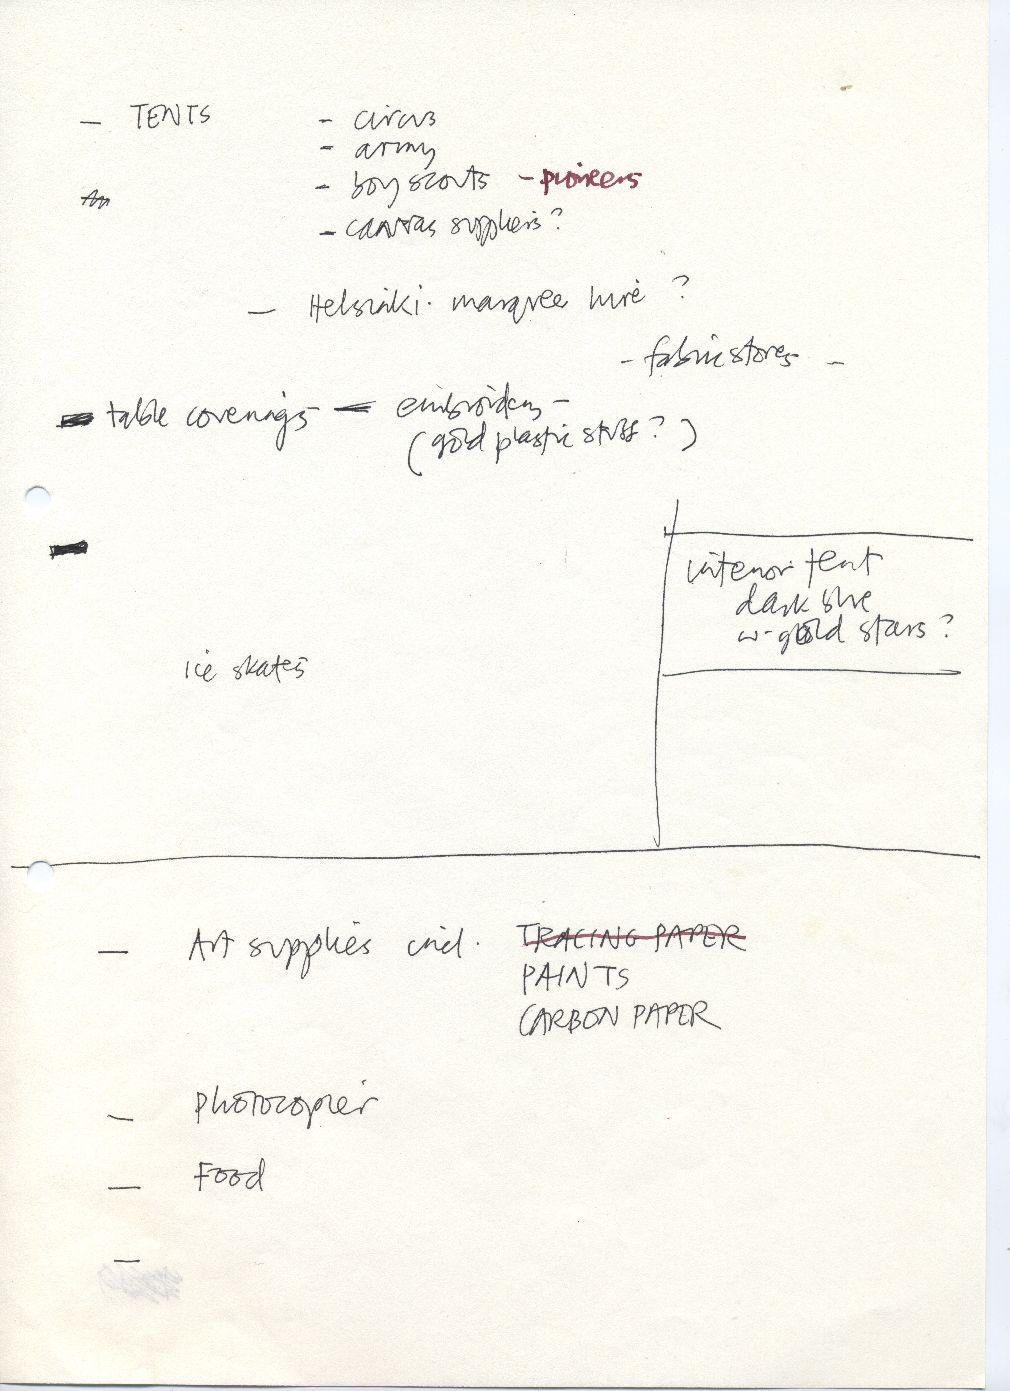 – TENTS – circus
– army
– boy scouts – pioneers
– canvas suppliers?
– Helsinki. marquee hire ?
– fabric stores –
– table coverings – embroidery –
(gold plastic stuff?)
interior tent
dark blue
w- gold stars?
ice skates
– Art supplies incl. TRACING PAPER
PAINTS
CARBON PAPER
– photocopier
– Food
–